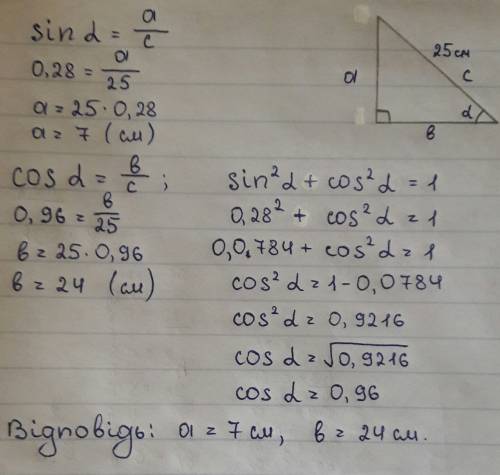 sin α = a/c
0,28 = a/25
a = 25 · 0,28
a = 7 (см)
a
25 см
c
α
в
cos α = в/c ;
0,96 = в/25
в = 25 · 0,96
в = 24 (см)
sin²α + cos²α = 1
0,28² + cos²α = 1
0,0.784 + cos²α = 1
cos²α = 1 - 0,0784
cos²α = 0,9216
cos α = √0,9216
cos α = 0,96
Відповідь: a = 7 см, в = 24 см.